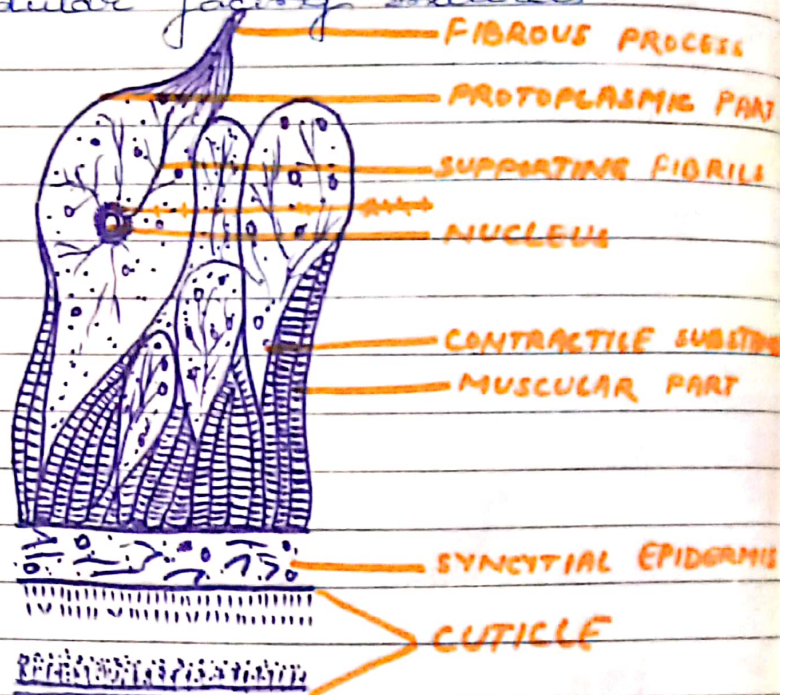 dular facing
FIBROUS PROCESS
PROTOPLASMIC PART
SUPPORTING FIBRILS
NUCLEUS
CONTRACTILE SUBSTAN
MUSCULAR PART
SYNCYTIAL EPIDERMIS
CUTICLE